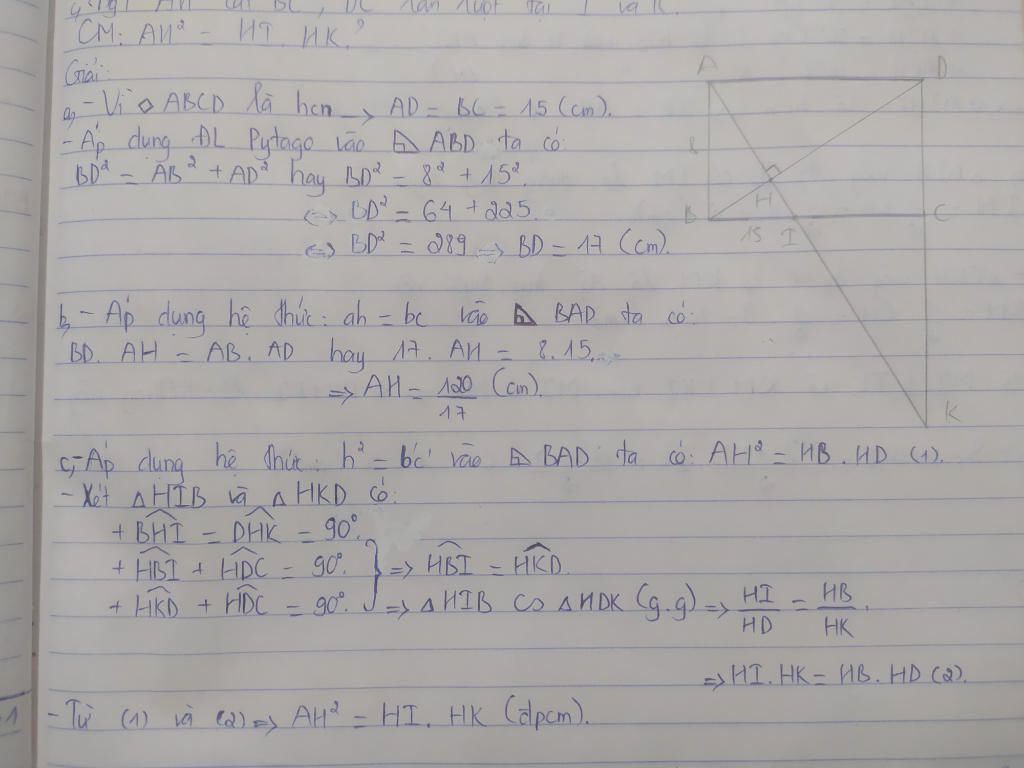 AH cắt BC, DC lần lượt tại I và K.
CM: AH² = HI. HK.?
Giải:
a, - Vì ◇ ABCD là hcn → AD = BC = 15 (cm).
- Áp dụng ĐL Pytago vào ⊿ ABD ta có:
BD² = AB² + AD² hay BD² = 8² + 15².
⇔ BD² = 64 + 225.
⇔ BD² = 289 ⇒ BD = 17 (cm).
b, - Áp dụng hệ thức: ah = bc vào ⊿ BAD ta có:
BD. AH = AB. AD hay 17. AH = 8.15.
⇒ AH = 120/17 (cm).
c, - Áp dụng hệ thức: h² = b'c' vào ⊿ BAD ta có: AH² = HB. HD (1).
- Xét △HIB và △HKD có:
+ BHI = DHK = 90°.
+ HBI + HDC = 90°. } ⇒ HBI = HKD.
+ HKD + HDC = 90°. ⇒ △HIB ∽ △HDK (g.g) ⇒ HI/HD = HB/HK.
⇒ HI. HK = HB. HD (2).
- Từ (1) và (2) ⇒ AH² = HI. HK (đpcm).
A
D
8
H
B
C
15
I
K
1